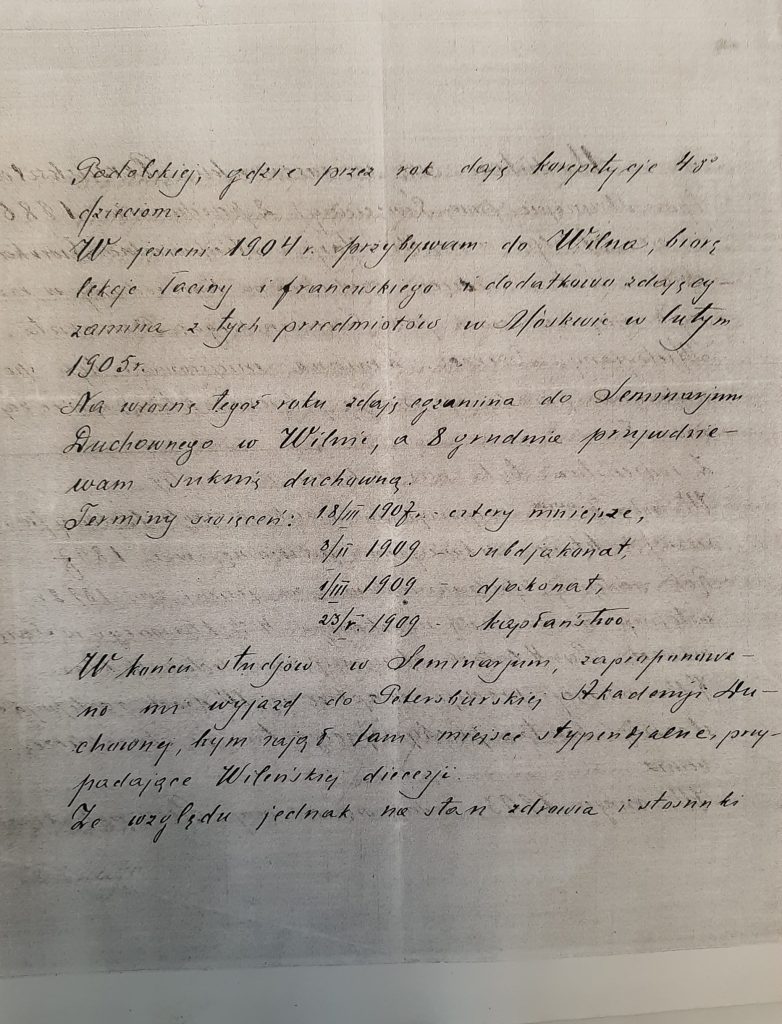 Podolskiej, gdzie przez rok daję korepetycje 4-o
dzieciom.
W jesieni 1904 r. przybywam do Wilna, biorę
lekcje łaciny i francuskiego i dodatkowo zdaję eg-
zamina z tych przedmiotów w Moskwie w lutym
1905 r.
Na wiosnę tegoż roku zdaję egzamina do Seminarjum
Duchownego w Wilnie, a 8 grudnia przywdzie-
wam suknię duchowną.
Terminy święceń: 18/III 1907 r. cztery mniejsze,
2/II 1909 - subdjakonat,
1/III 1909 djakonat,
23/V. 1909 - kapłaństwo.
W końcu studjów w Seminarjum, zaproponowa-
no mi wyjazd do Petersburskiej Akademji Du-
chownej, bym zajął tam miejsce stypendjalne, przy-
padające Wileńskiej diecezji.
Ze względu jednak na stan zdrowia i stosunki